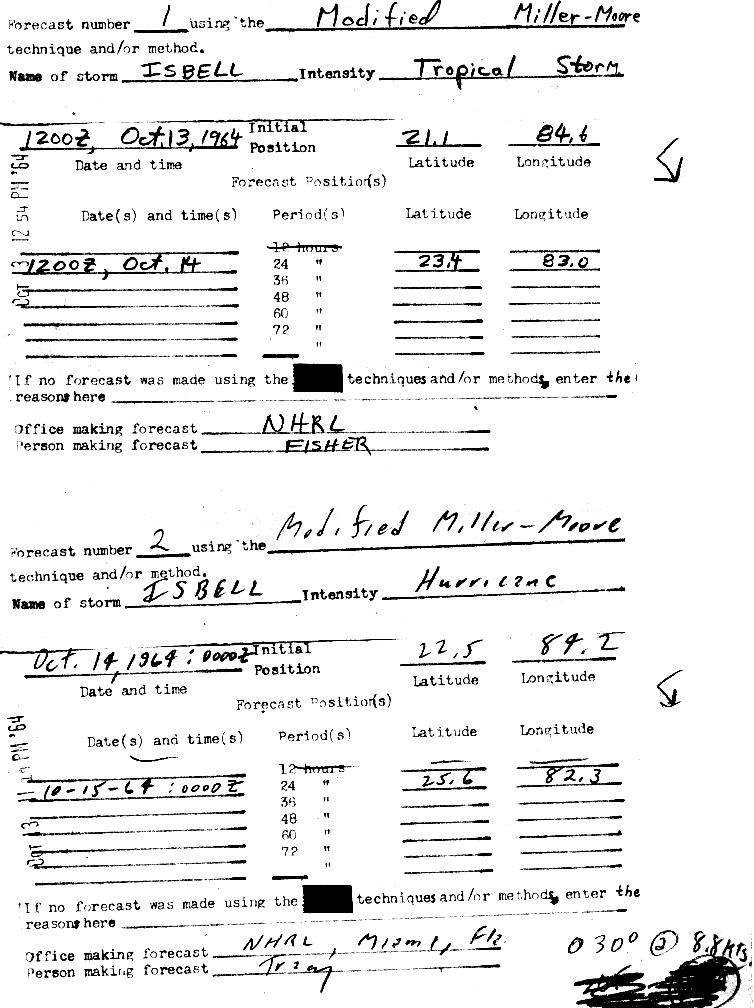 Forecast number 1 using the Modified Miller-Moore
technique and/or method.
Name of storm ISBELL Intensity Tropical Storm
1200Z, Oct.13, 1964 Initial Position 21.1 84.6
Date and time Latitude Longitude
Forecast Position(s)
Date(s) and time(s) Period(s) Latitude Longitude
12 hours
1200Z, Oct. 14 24 " 23.4 83.0
36 "
48 "
60 "
72 "
"
OCT 13 12 54 PM '64
If no forecast was made using the techniques and/or methods, enter the
reasons here
Office making forecast NHRL
Person making forecast FISHER
Forecast number 2 using the Modified Miller-Moore
technique and/or method.
Name of storm ISBELL Intensity Hurricane
Oct. 14, 1964 : 0000Z Initial Position 22.5 84.2
Date and time Latitude Longitude
Forecast Position(s)
Date(s) and time(s) Period(s) Latitude Longitude
12 hours
10-15-64 : 0000Z 24 " 25.6 82.3
36 "
48 "
60 "
72 "
"
OCT 13 11 PM '64
If no forecast was made using the techniques and/or methods, enter the
reasons here
Office making forecast NHRL, Miami, Fla.
Person making forecast
030° @ 8.8 KTS.